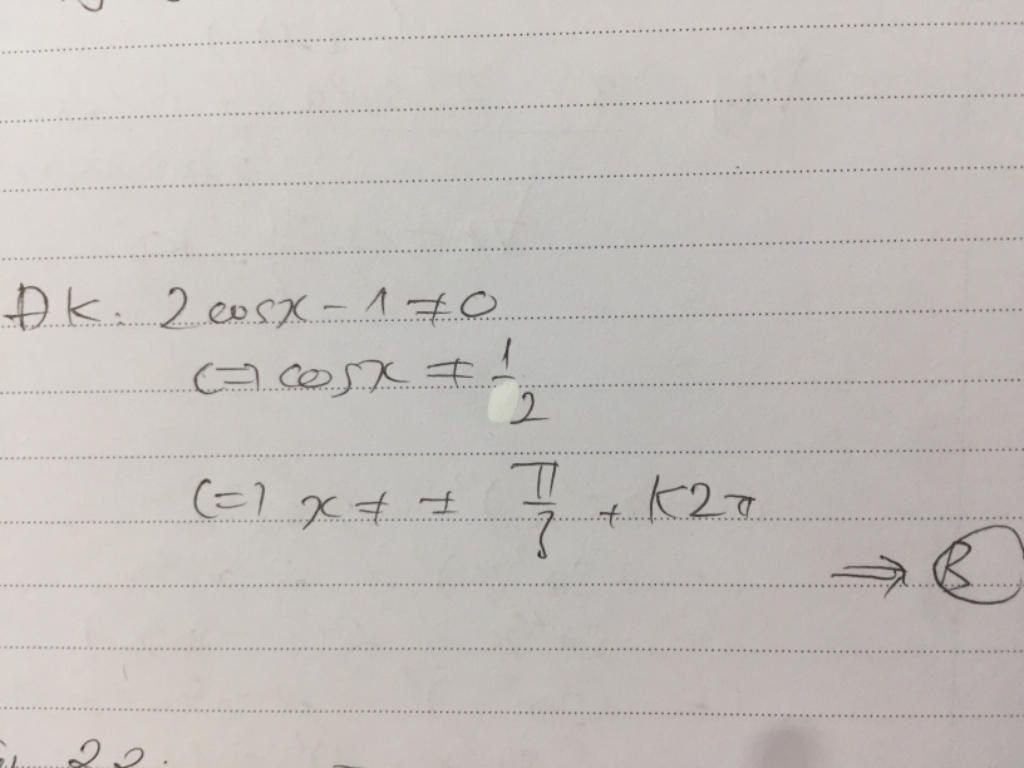 ĐK: 2 cosx - 1 ≠ 0
(=) cosx ≠ 1/2
(=) x ≠ ± π/3 + K2π
⇒ B
22.